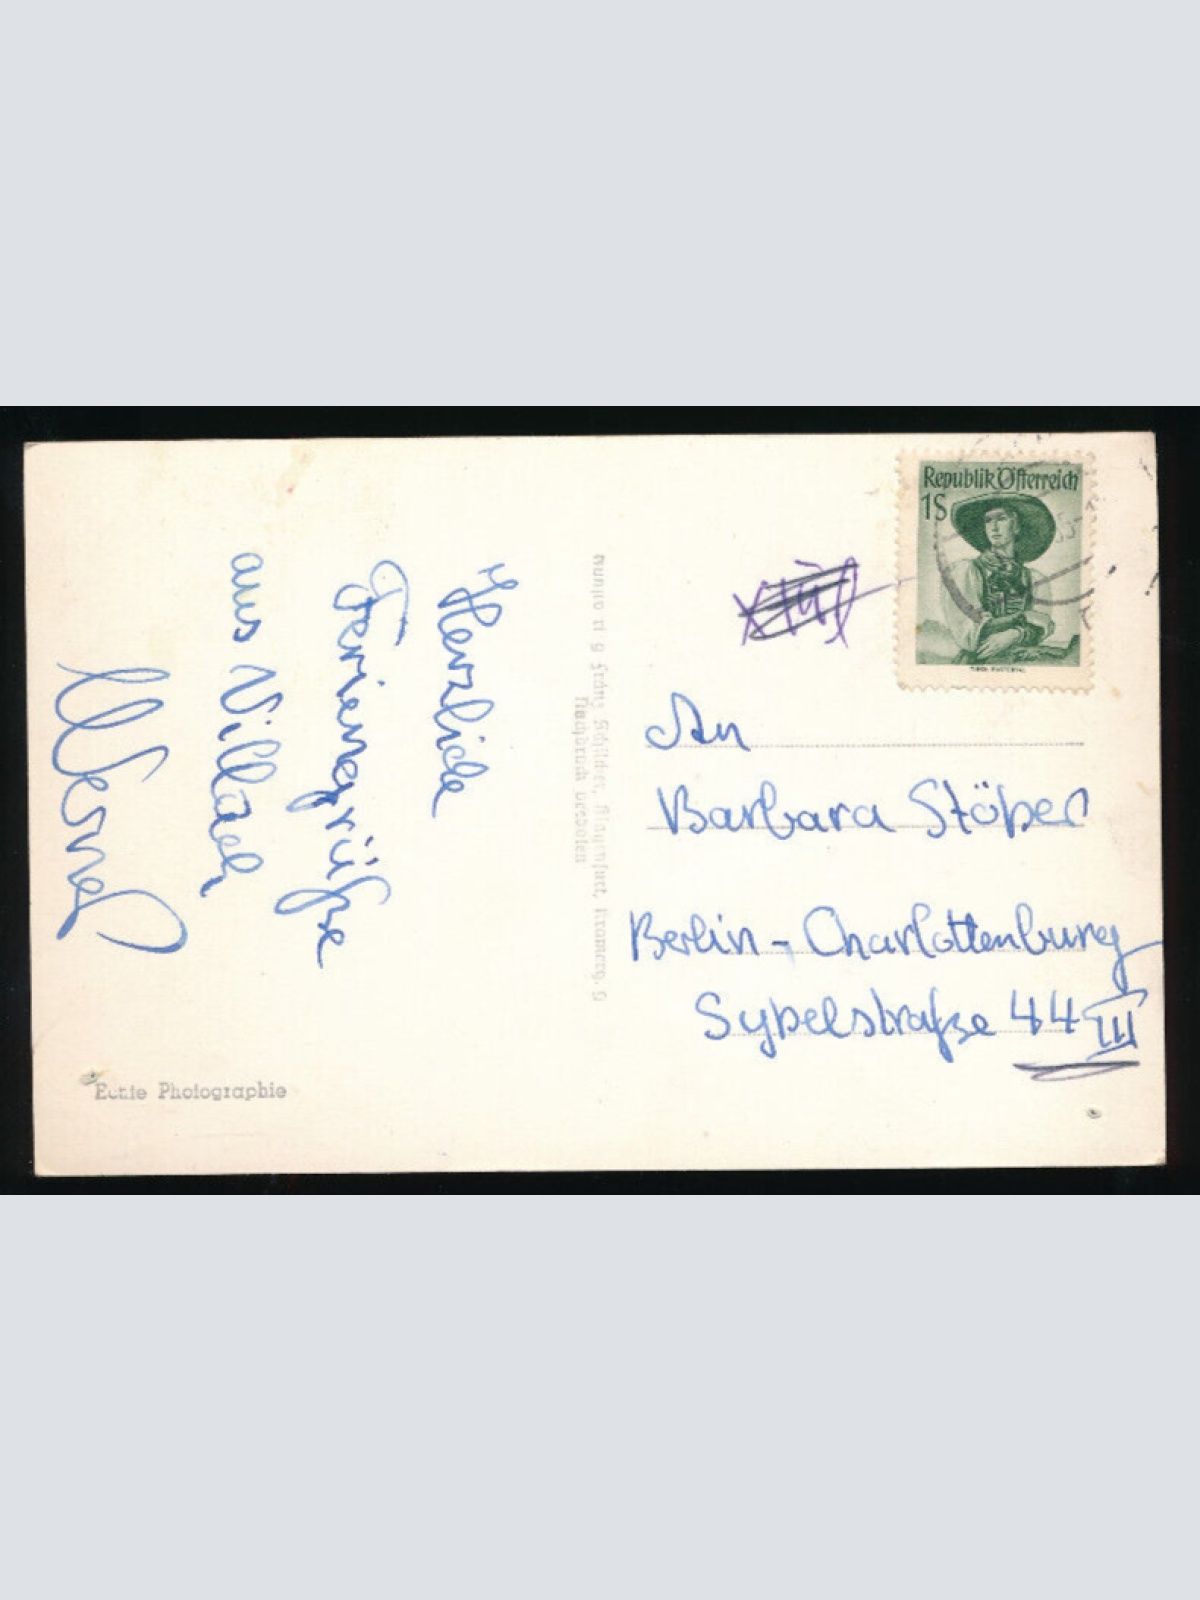 Herzliche
Feriengrüße
aus Villach
Werner
Echte Photographie
Franz Schilcher, Klagenfurt,
Nachdruck verboten
Republik Österreich
1S
An
Barbara Stöber
Berlin-Charlottenburg
Sybelstraße 44 III